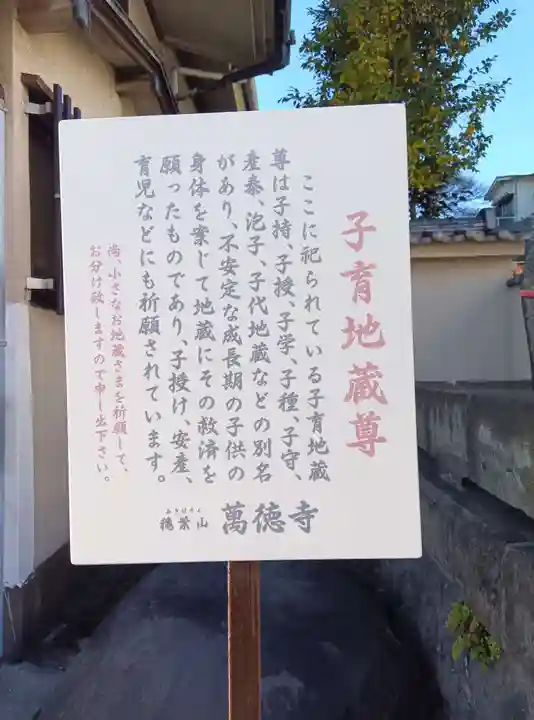 子育地蔵尊
ここに祀られている子育地蔵
尊は子持、子授、子学、子種、子守、
産泰、泡子、子代地蔵などの別名
があり、不安定な成長期の子供の
身体を案じて地蔵にその救済を
願ったものであり、子授け、安産、
育児などにも祈願されています。
尚、小さなお地蔵さまを祈願して、
お分け致しますので申し出下さい。
葉山 萬徳寺